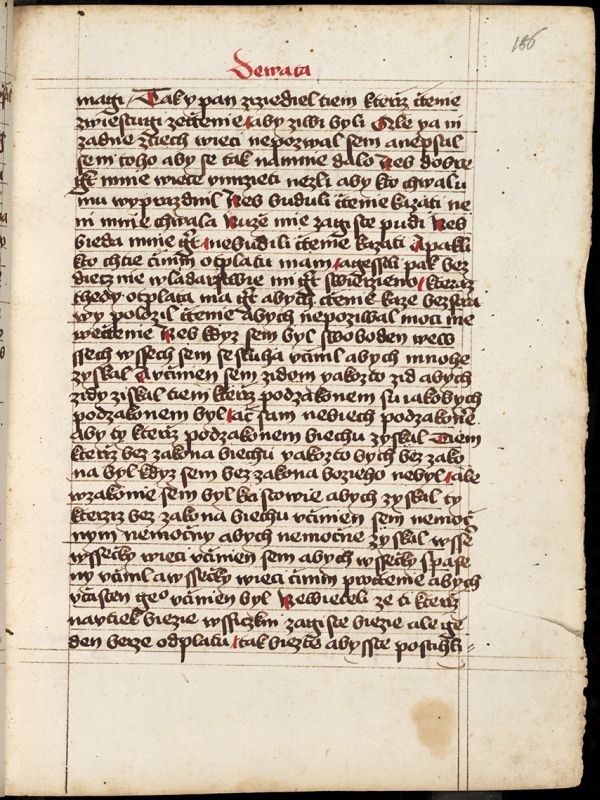 156
Dewata
magi / Tak y pan zrziediel tiem kterziz cteme
zwiestugi zecteme aby ziwi byli Ale ya ni
zadne ztiech wieci nepozwal sem anepsal
sem toho aby se tak namne dalo Neb dobre
gt mnie wiece vmrzieti nezli aby kto chwalu
mu wyprazdnil Neb buduli cteme kazati ne
ni mnie chwala Nuze mie zagiste pudi Neb
bieda mnie gt nebudili cteme kazati Apakli
kto chtie cinim otplatu mam agessli pak bez
dietz nie wladarstwie mi gt swierzieno kteraz
thedy otplata ma gt abych cteme kaze bezstra
wy polozil cteme abych nepoziwal moci me
wecteme Neb kdyz sem byl swoboden weco
ssech wssech sem se sluha vcinil abych mnohe
zyskal A vcinen sem zidom yakozto zid abych
zidy ziskal tiem kterziz podzakonem su iakobych
podzakonem byl ac sam nebiech podzakone
aby ty kterziz podzakonem biechu zyskal Tiem
kterziz bez zakona biechu yakozto bych bez zako
na byl kdyz sem bez zakona bozieho nebyl ale
wzakonie sem byl kristowie abych zyskal ty
kterziz bez zakona biechu vcinien sem nemoc
nym nemocny abych nemocne zyskal wsse
wssecky wieci vcinien sem abych wssecky spase
ny vcinil a wssecky wieci cinim procteme abych
vcasten geo vcinien byl Newieteli ze ti kterziz
nawtiek biezie wssiczkni zagiste biezie ale ge
den berze odplatu tak biezte abysste postihli